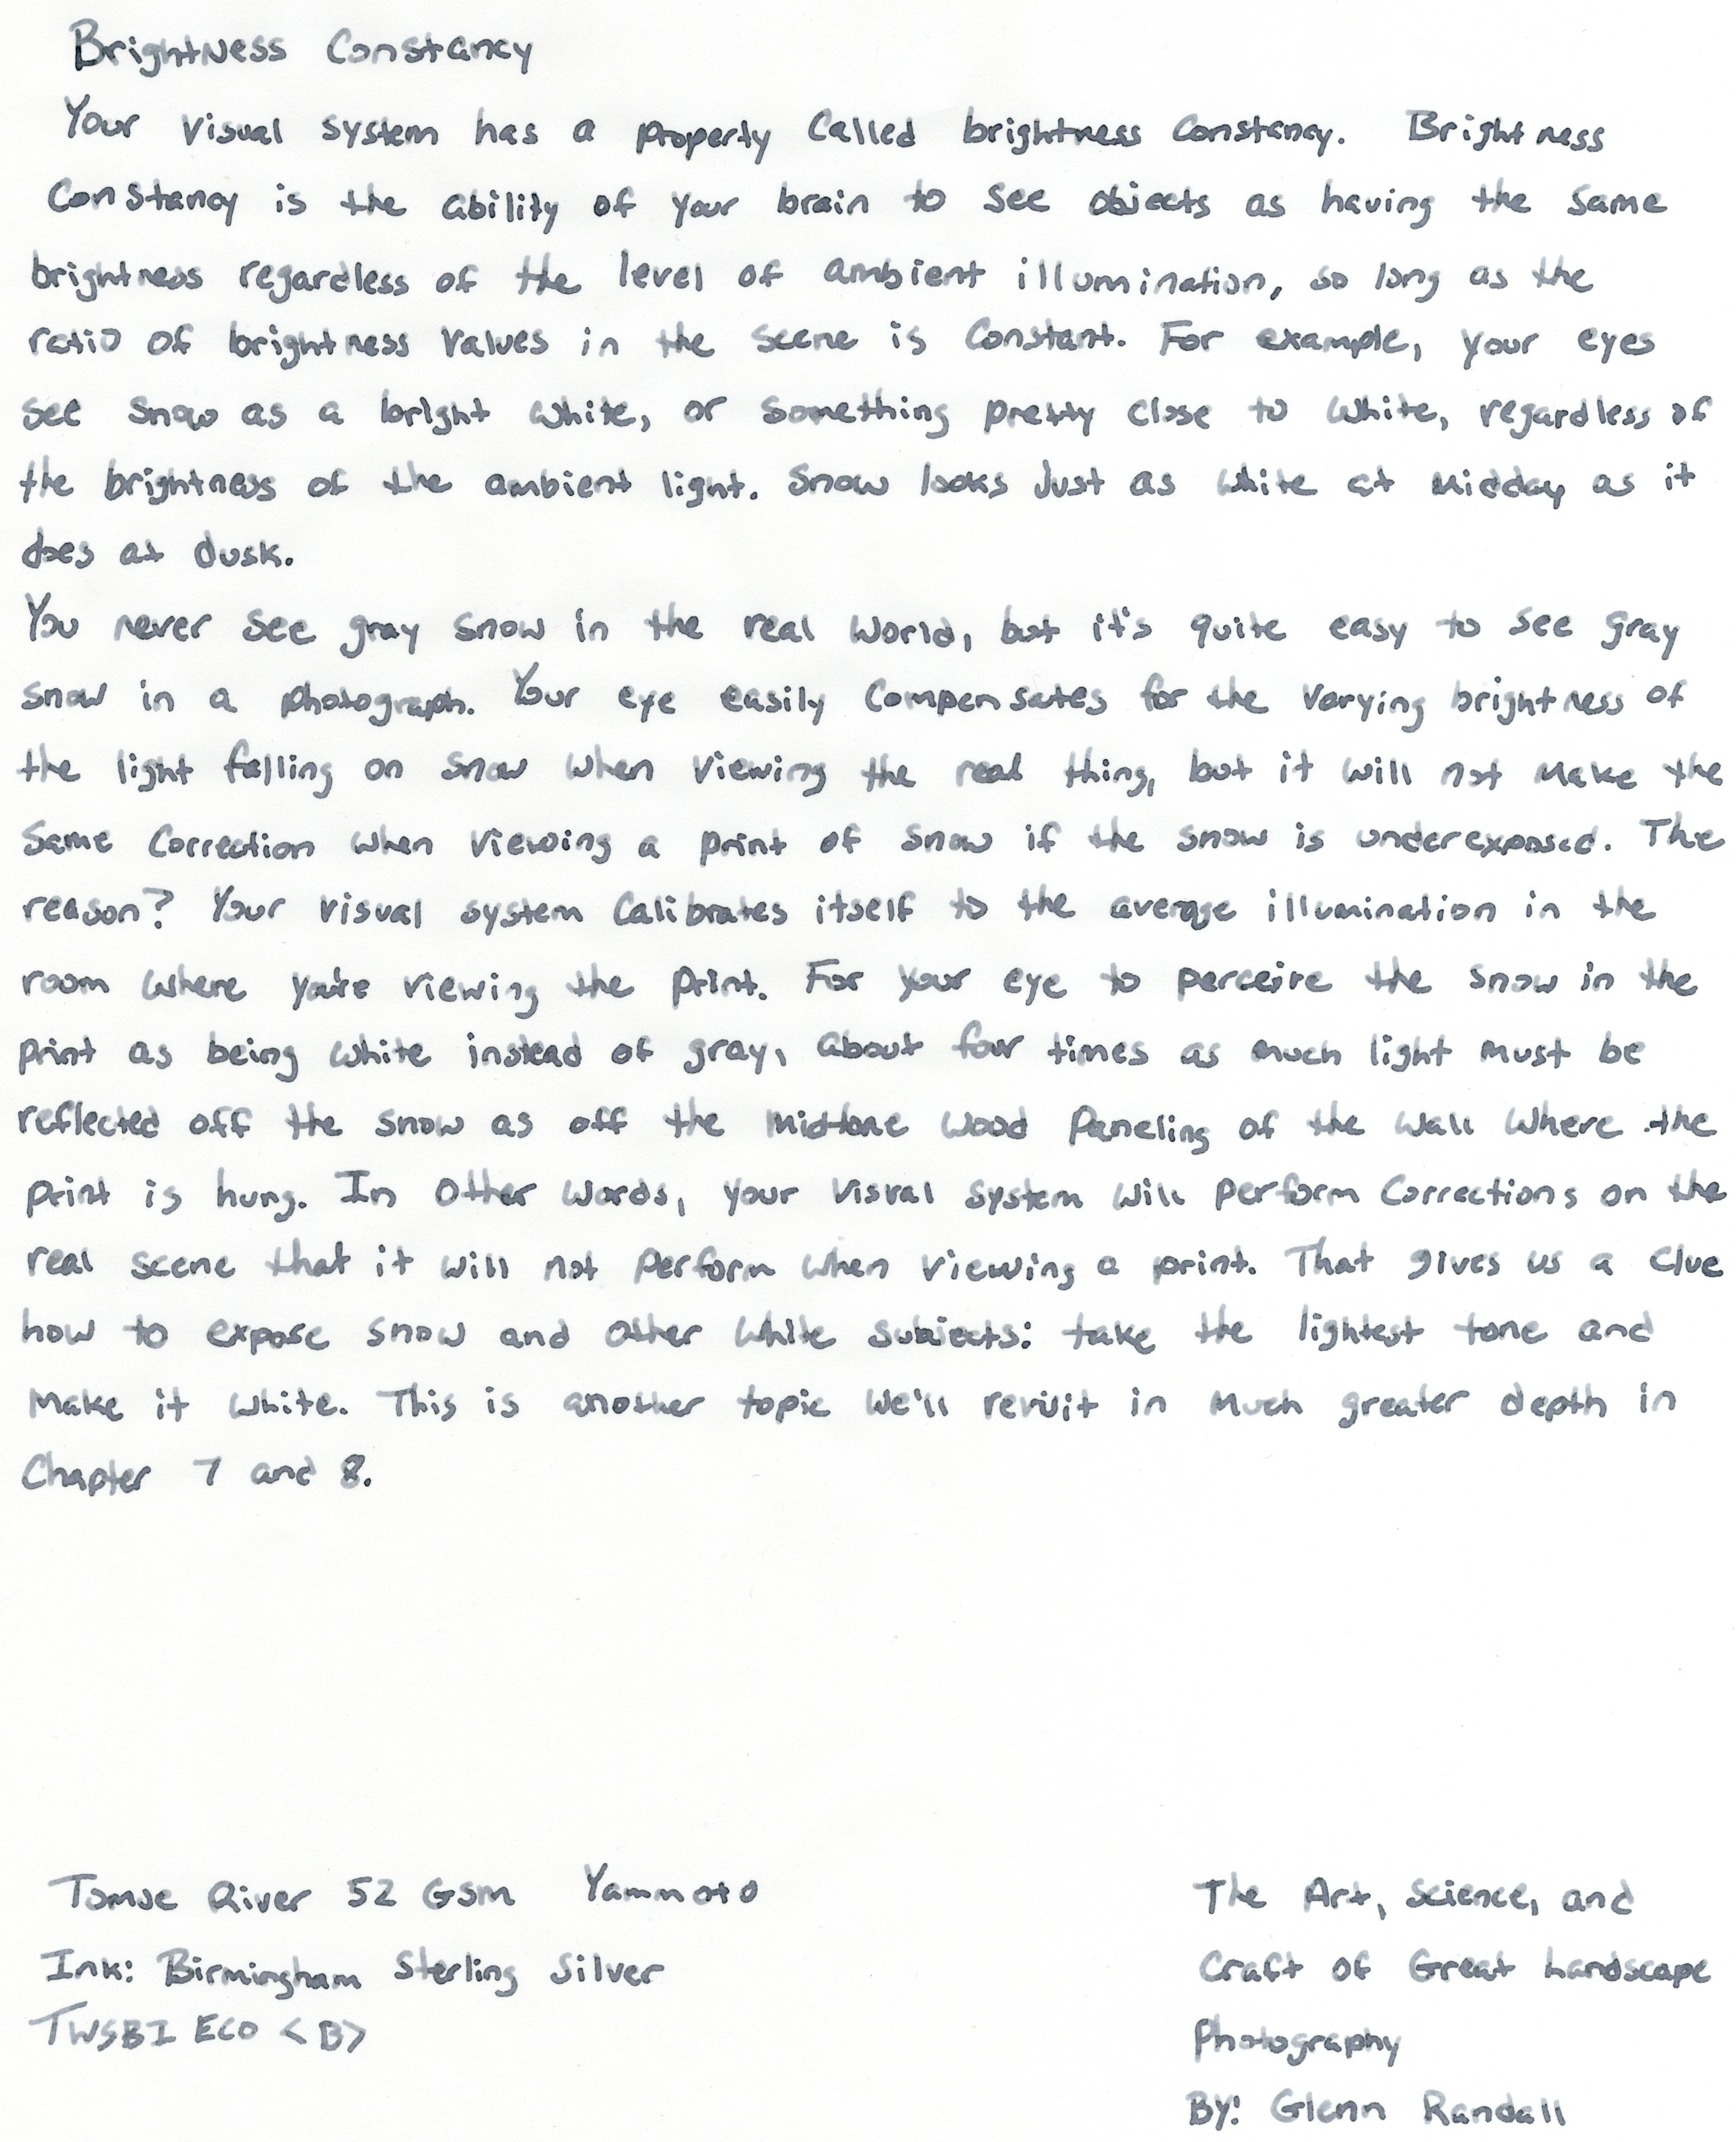 Brightness Constancy
Your visual system has a property called brightness constancy. Brightness
constancy is the ability of your brain to see objects as having the same
brightness regardless of the level of ambient illumination, so long as the
ratio of brightness values in the scene is constant. For example, your eyes
see snow as a bright white, or something pretty close to white, regardless of
the brightness of the ambient light. Snow looks just as white at midday as it
does at dusk.
You never see gray snow in the real world, but it's quite easy to see gray
snow in a photograph. Your eye easily compensates for the varying brightness of
the light falling on snow when viewing the real thing, but it will not make the
same correction when viewing a print of snow if the snow is underexposed. The
reason? Your visual system calibrates itself to the average illumination in the
room where you're viewing the print. For your eye to perceive the snow in the
print as being white instead of gray, about four times as much light must be
reflected off the snow as off the midtone wood paneling of the wall where the
print is hung. In other words, your visual system will perform corrections on the
real scene that it will not perform when viewing a print. That gives us a clue
how to expose snow and other white subjects: take the lightest tone and
make it white. This is another topic we'll revisit in much greater depth in
Chapter 7 and 8.
Tomoe River 52 Gsm Yammoto
Ink: Birmingham Sterling Silver
TWSBI ECO <B>
The Art, Science, and
Craft of Great Landscape
Photography
By: Glenn Randall